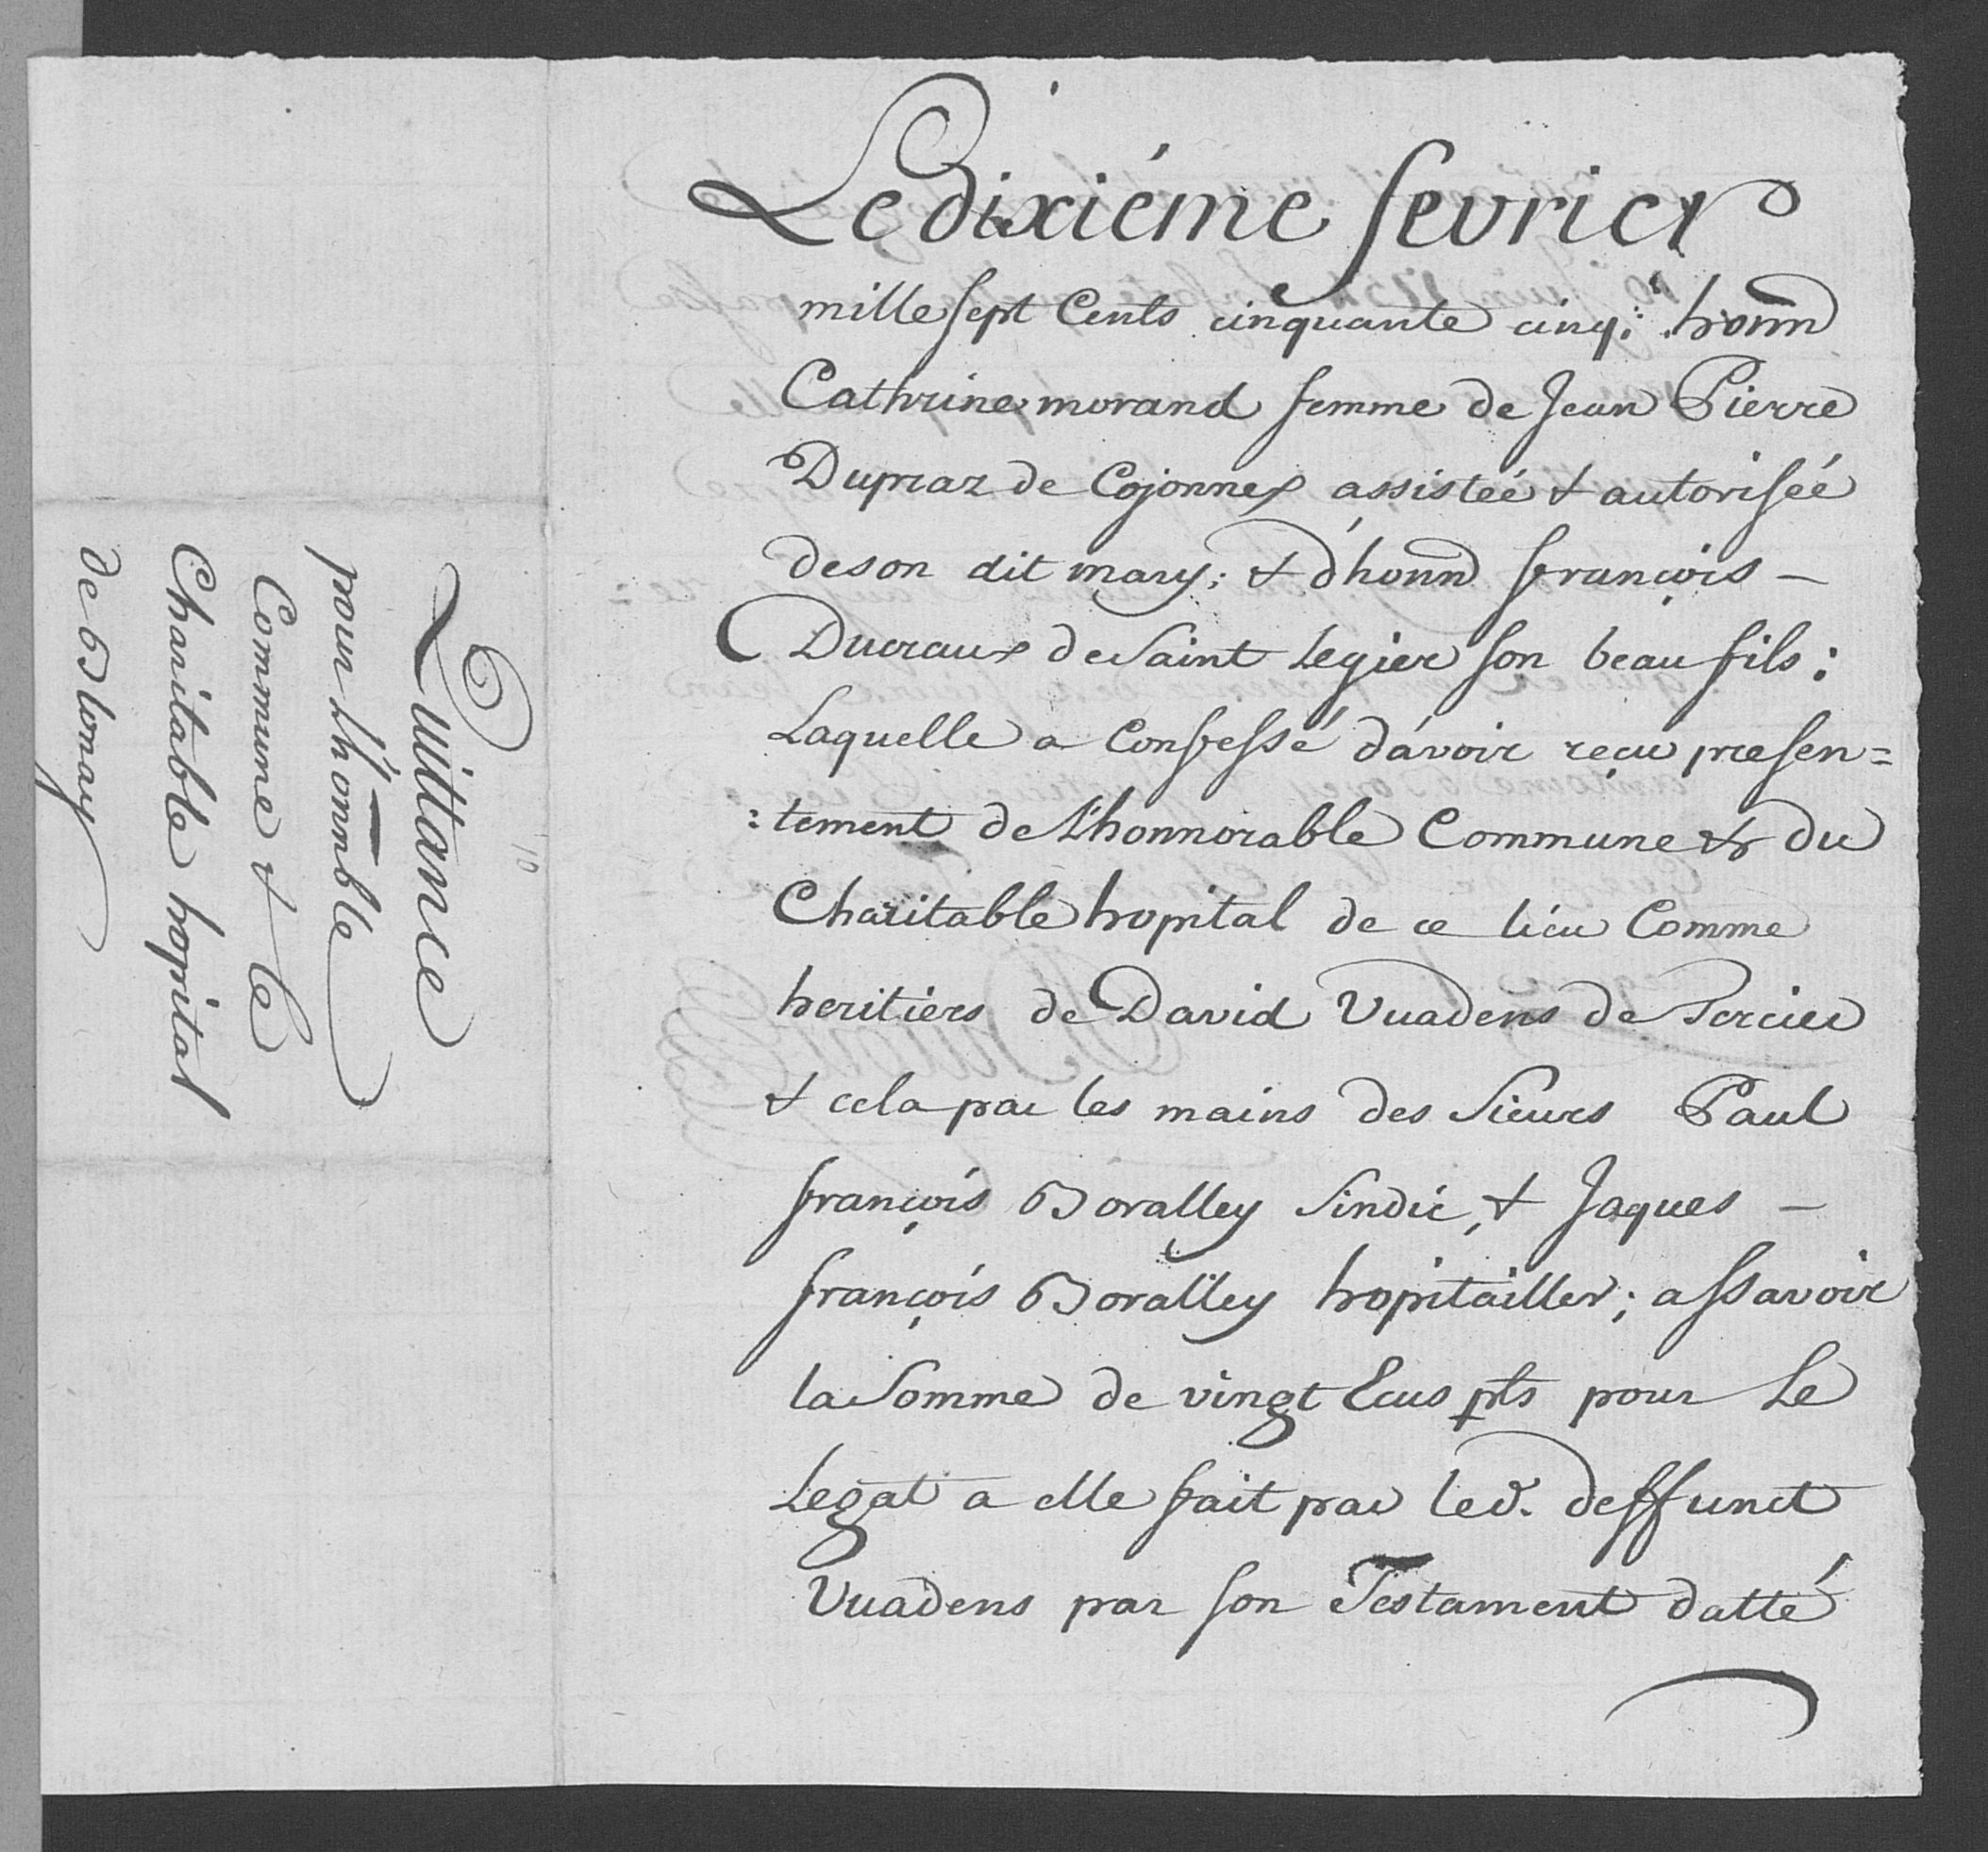 Le dixiéme fevrier
mille sept Cents cinquante cinq; honn
Cathrine morand femme de Jean Pierre
Dupraz de Cojonnex assisteé & autoriséé
de son dit mary; & d'honn françois –
Ducraux de Saint Legier son beau fils;
Laquelle a Confessé d'avoir reçu presen=
:tement de L'honnorable Commune & du
Charitable hopital de ce lieu Comme
heritiers de David Vuadens de Tercier
& cela par les mains des Sieurs Paul
françois Boralley Sindic, & Jaques –
françois Boralley hopitailler; assavoir
la Somme de vingt Ecus pts pour Le
Legat a elle fait par led. deffunct
Vuadens par son Testament datté
Quittance
pour L'honnble
Commune & le
Charitable hopital
de Blonay
10